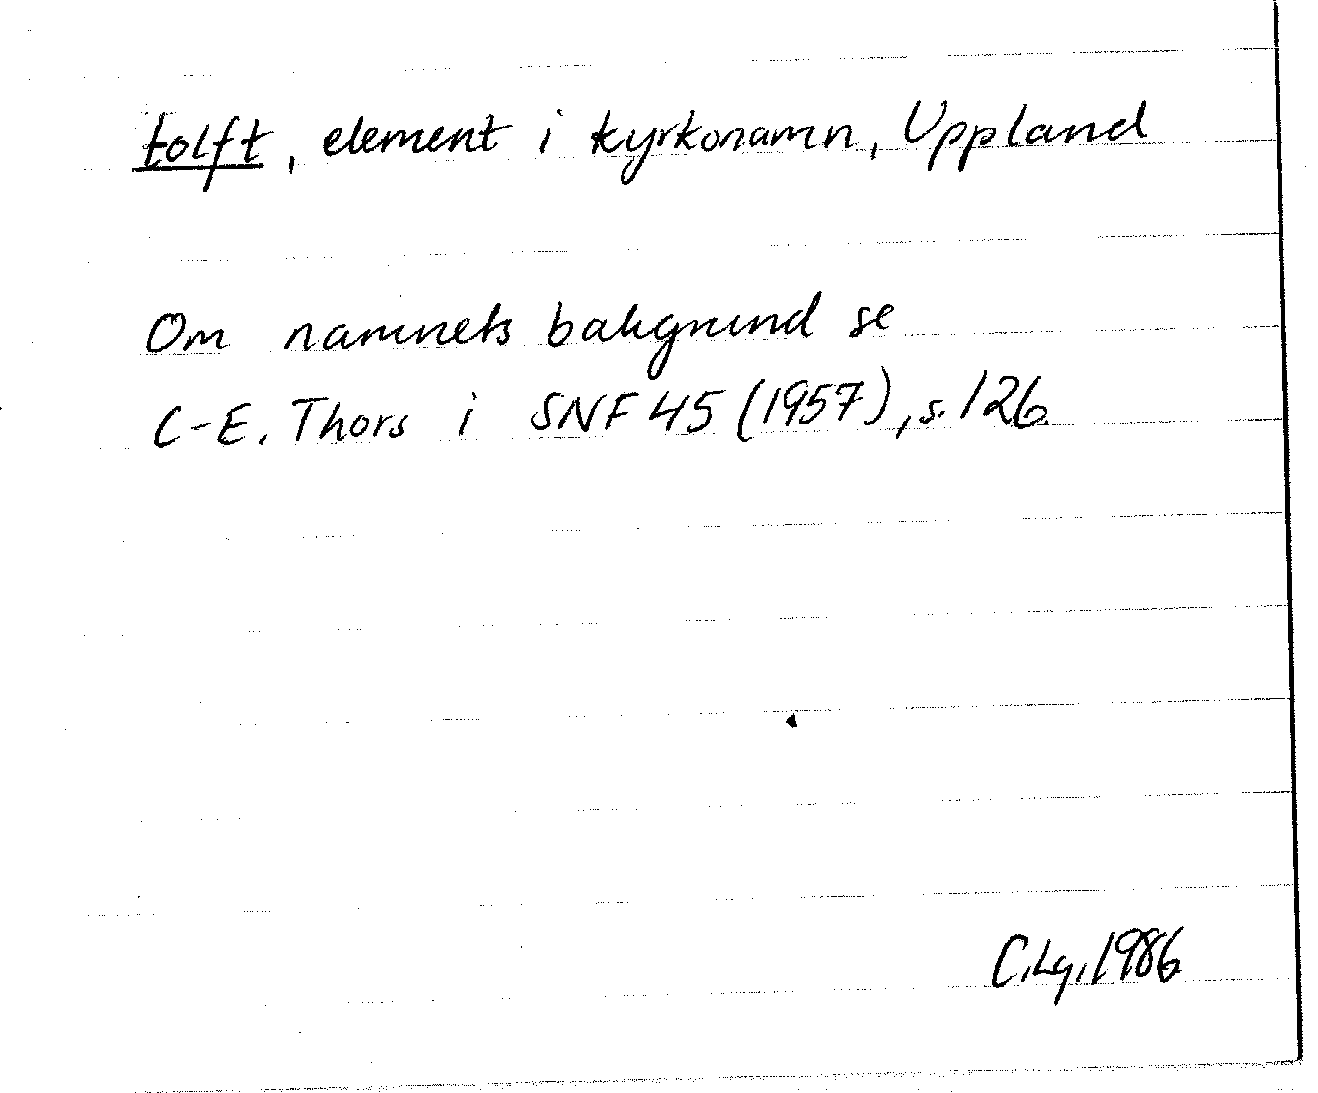 tolft, element i kyrkonamn, Uppland
Om namnets bakgrund se
C-E. Thors i SNF 45 (1957), s. 126
C.Lg. 1986